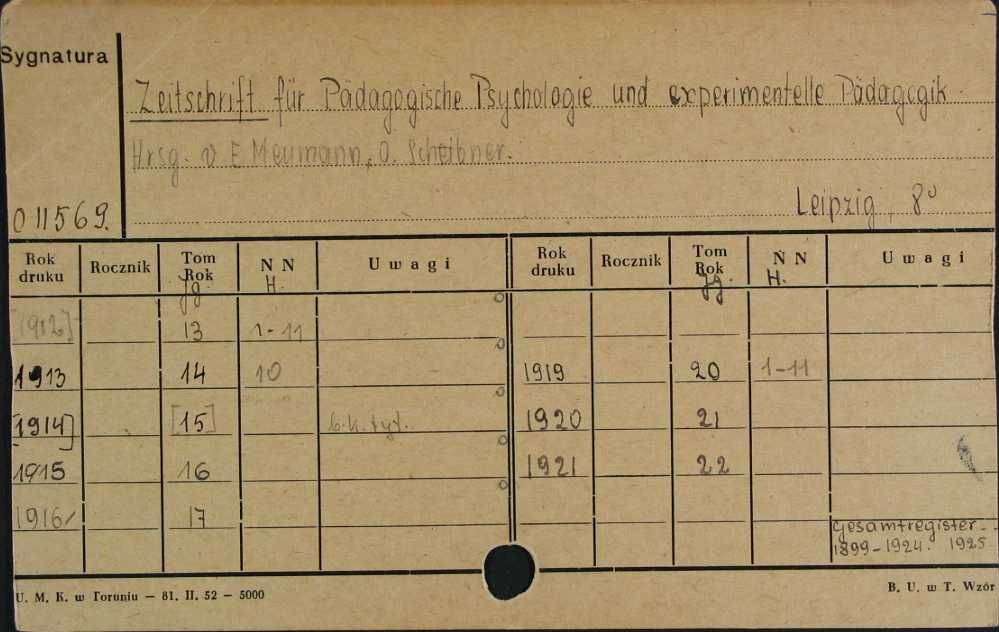 Sygnatura
Zeitschrift für Pädagogische Psychologie und experimentelle Pädagogik
Hrsg. v. E Meumann, O. Scheibner.
011569.
Leipzig, 8⁰
Rok druku Rocznik Tom Rok N N Uwagi Rok druku Rocznik Tom Rok N N Uwagi
Jg. H. Jg. H.
[1912] 13 1-11
1913 14 10 1919 20 1-11
[1914] [15] b.k. tyt. 1920 21
1915 16 1921 22
1916/ 17
Gesamtregister
1899-1924. 1925
U. M. K. w Toruniu — 81. II. 52 — 5000
B. U. w T. Wzór